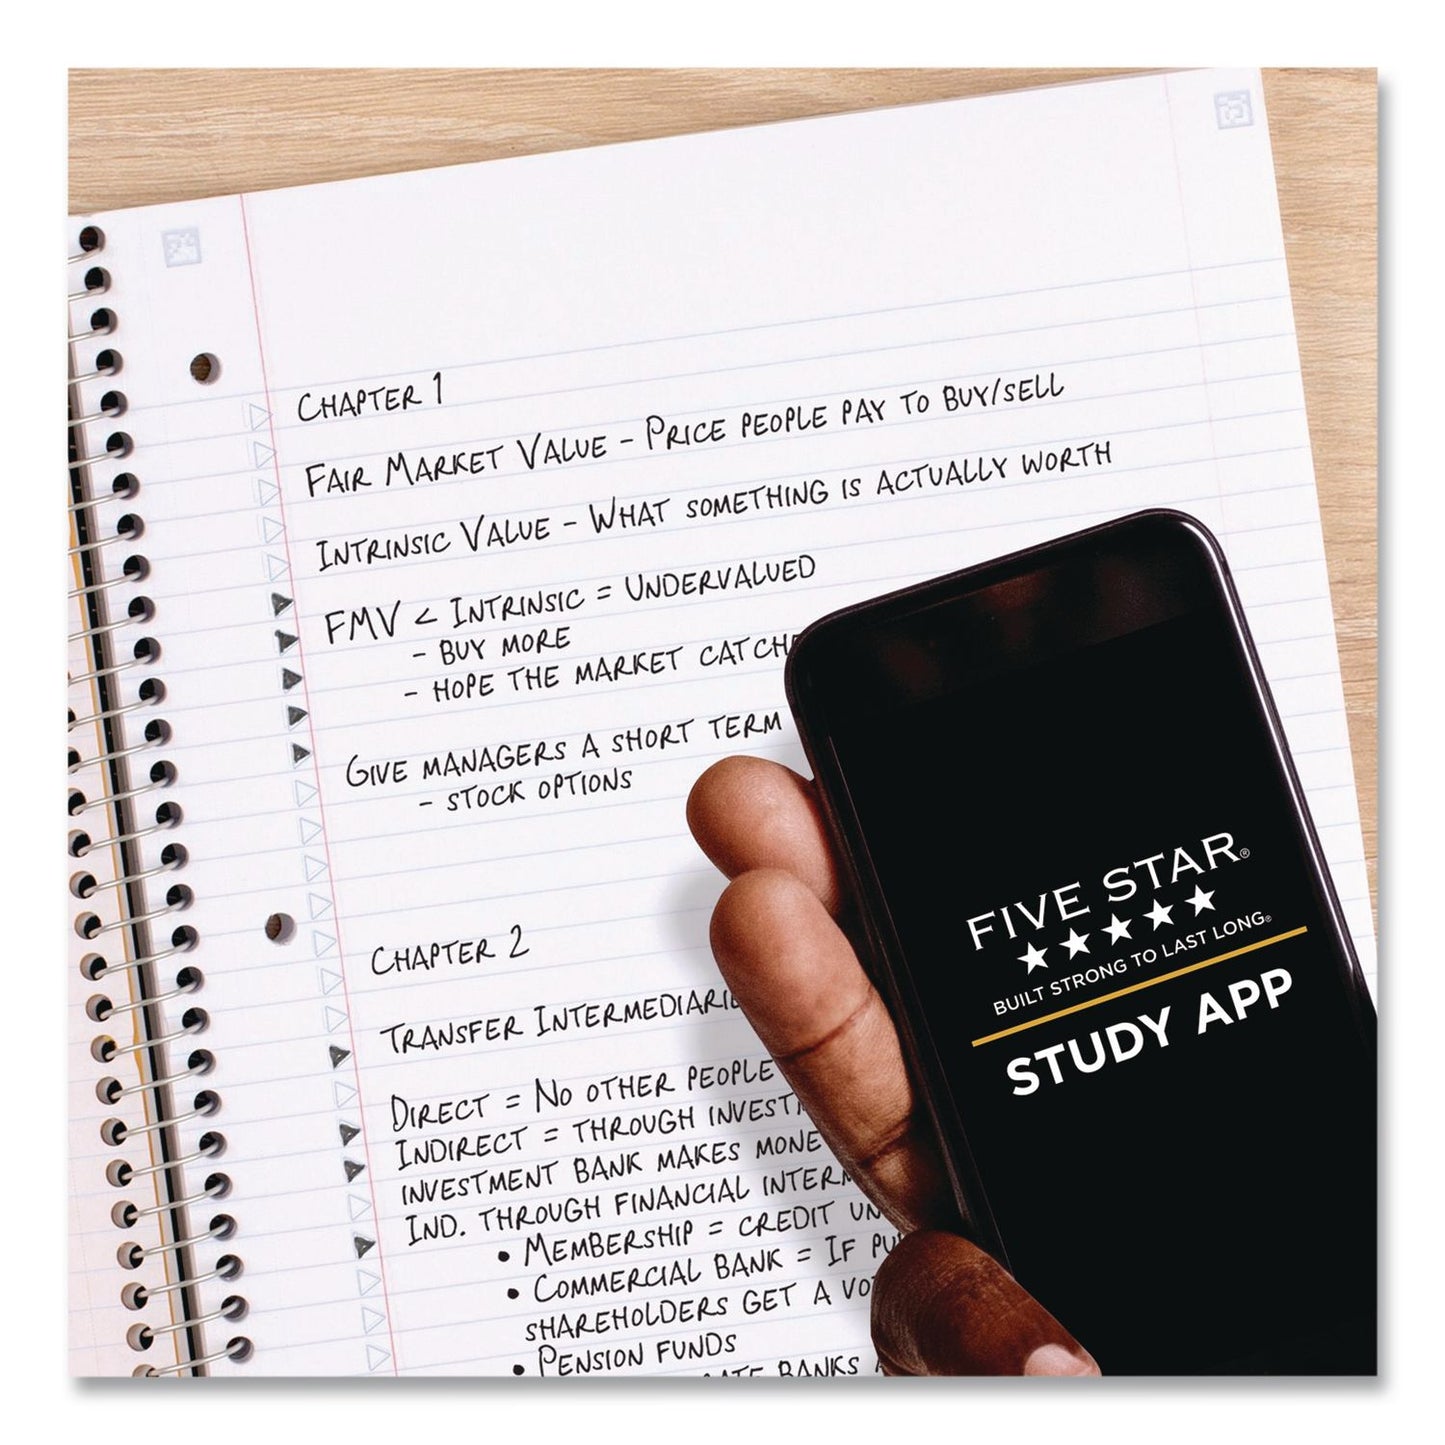 CHAPTER 1
FAIR MARKET VALUE - PRICE PEOPLE PAY TO BUY/SELL
INTRINSIC VALUE - WHAT SOMETHING IS ACTUALLY WORTH
FMV < INTRINSIC = UNDERVALUED
- BUY MORE
- HOPE THE MARKET CATCHE
GIVE MANAGERS A SHORT TERM
- STOCK OPTIONS
CHAPTER 2
TRANSFER INTERMEDIARIE
DIRECT = NO OTHER PEOPLE
INDIRECT = THROUGH INVESTM
INVESTMENT BANK MAKES MONE
IND. THROUGH FINANCIAL INTERM
• MEMBERSHIP = CREDIT UN
• COMMERCIAL BANK = IF PU
SHAREHOLDERS GET A VO
• PENSION FUNDS
BANKS
FIVE STAR®
★★★★★
BUILT STRONG TO LAST LONG®
STUDY APP